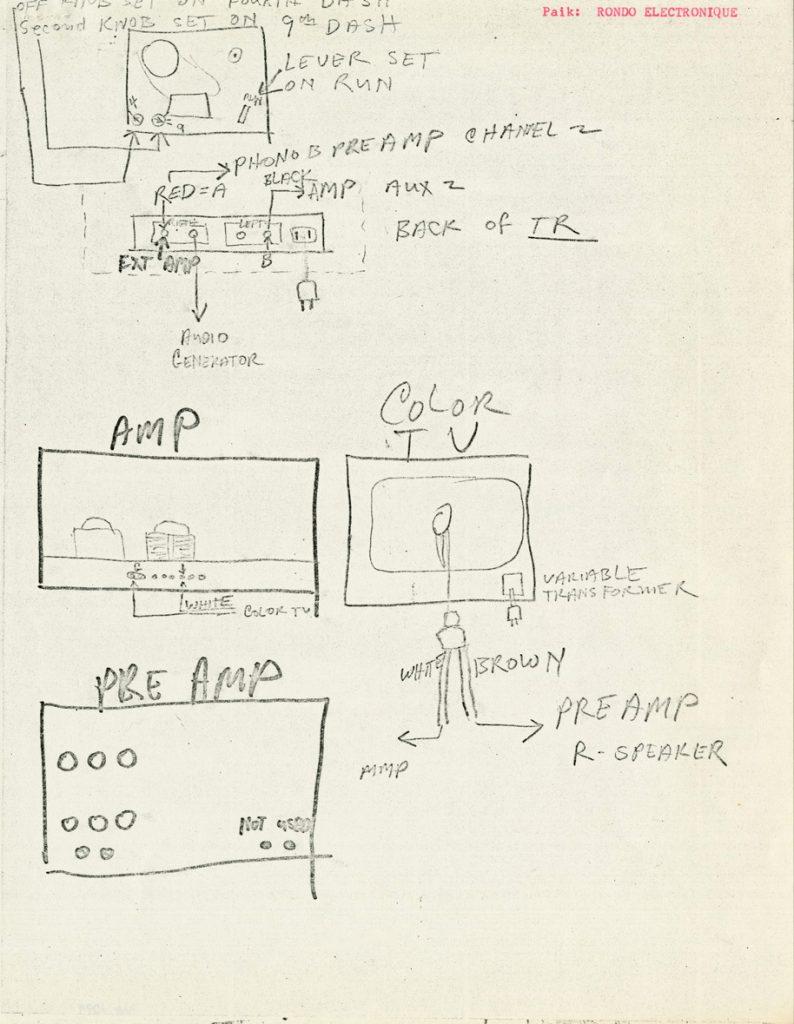 Paik: RONDO ELECTRONIQUE
OFF KNOB SET ON FOURTH DASH
Second KNOB SET ON 9TH DASH
LEVER SET
ON RUN
RUN
4
9
PHONO B PRE AMP CHANEL 2
BLACK
RED = A
AMP AUX 2
BACK of TR
LEFT
EXT AMP
B
AUDIO
GENERATOR
AMP
COLOR
TV
WHITE
COLOR TV
VARIABLE
TRANSFORMER
WHITE
BROWN
PRE AMP
PREAMP
R-SPEAKER
AMP
NOT USED